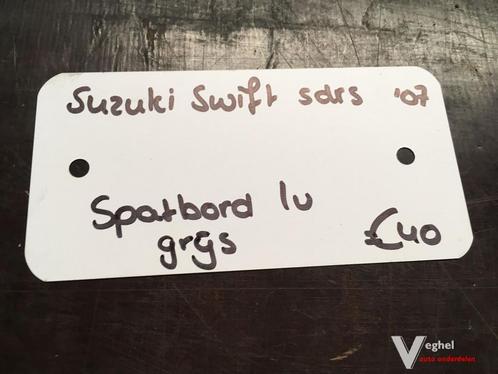 Suzuki Swift sdrs '07
Spatbord lv
grijs €40
Veghel
auto onderdelen